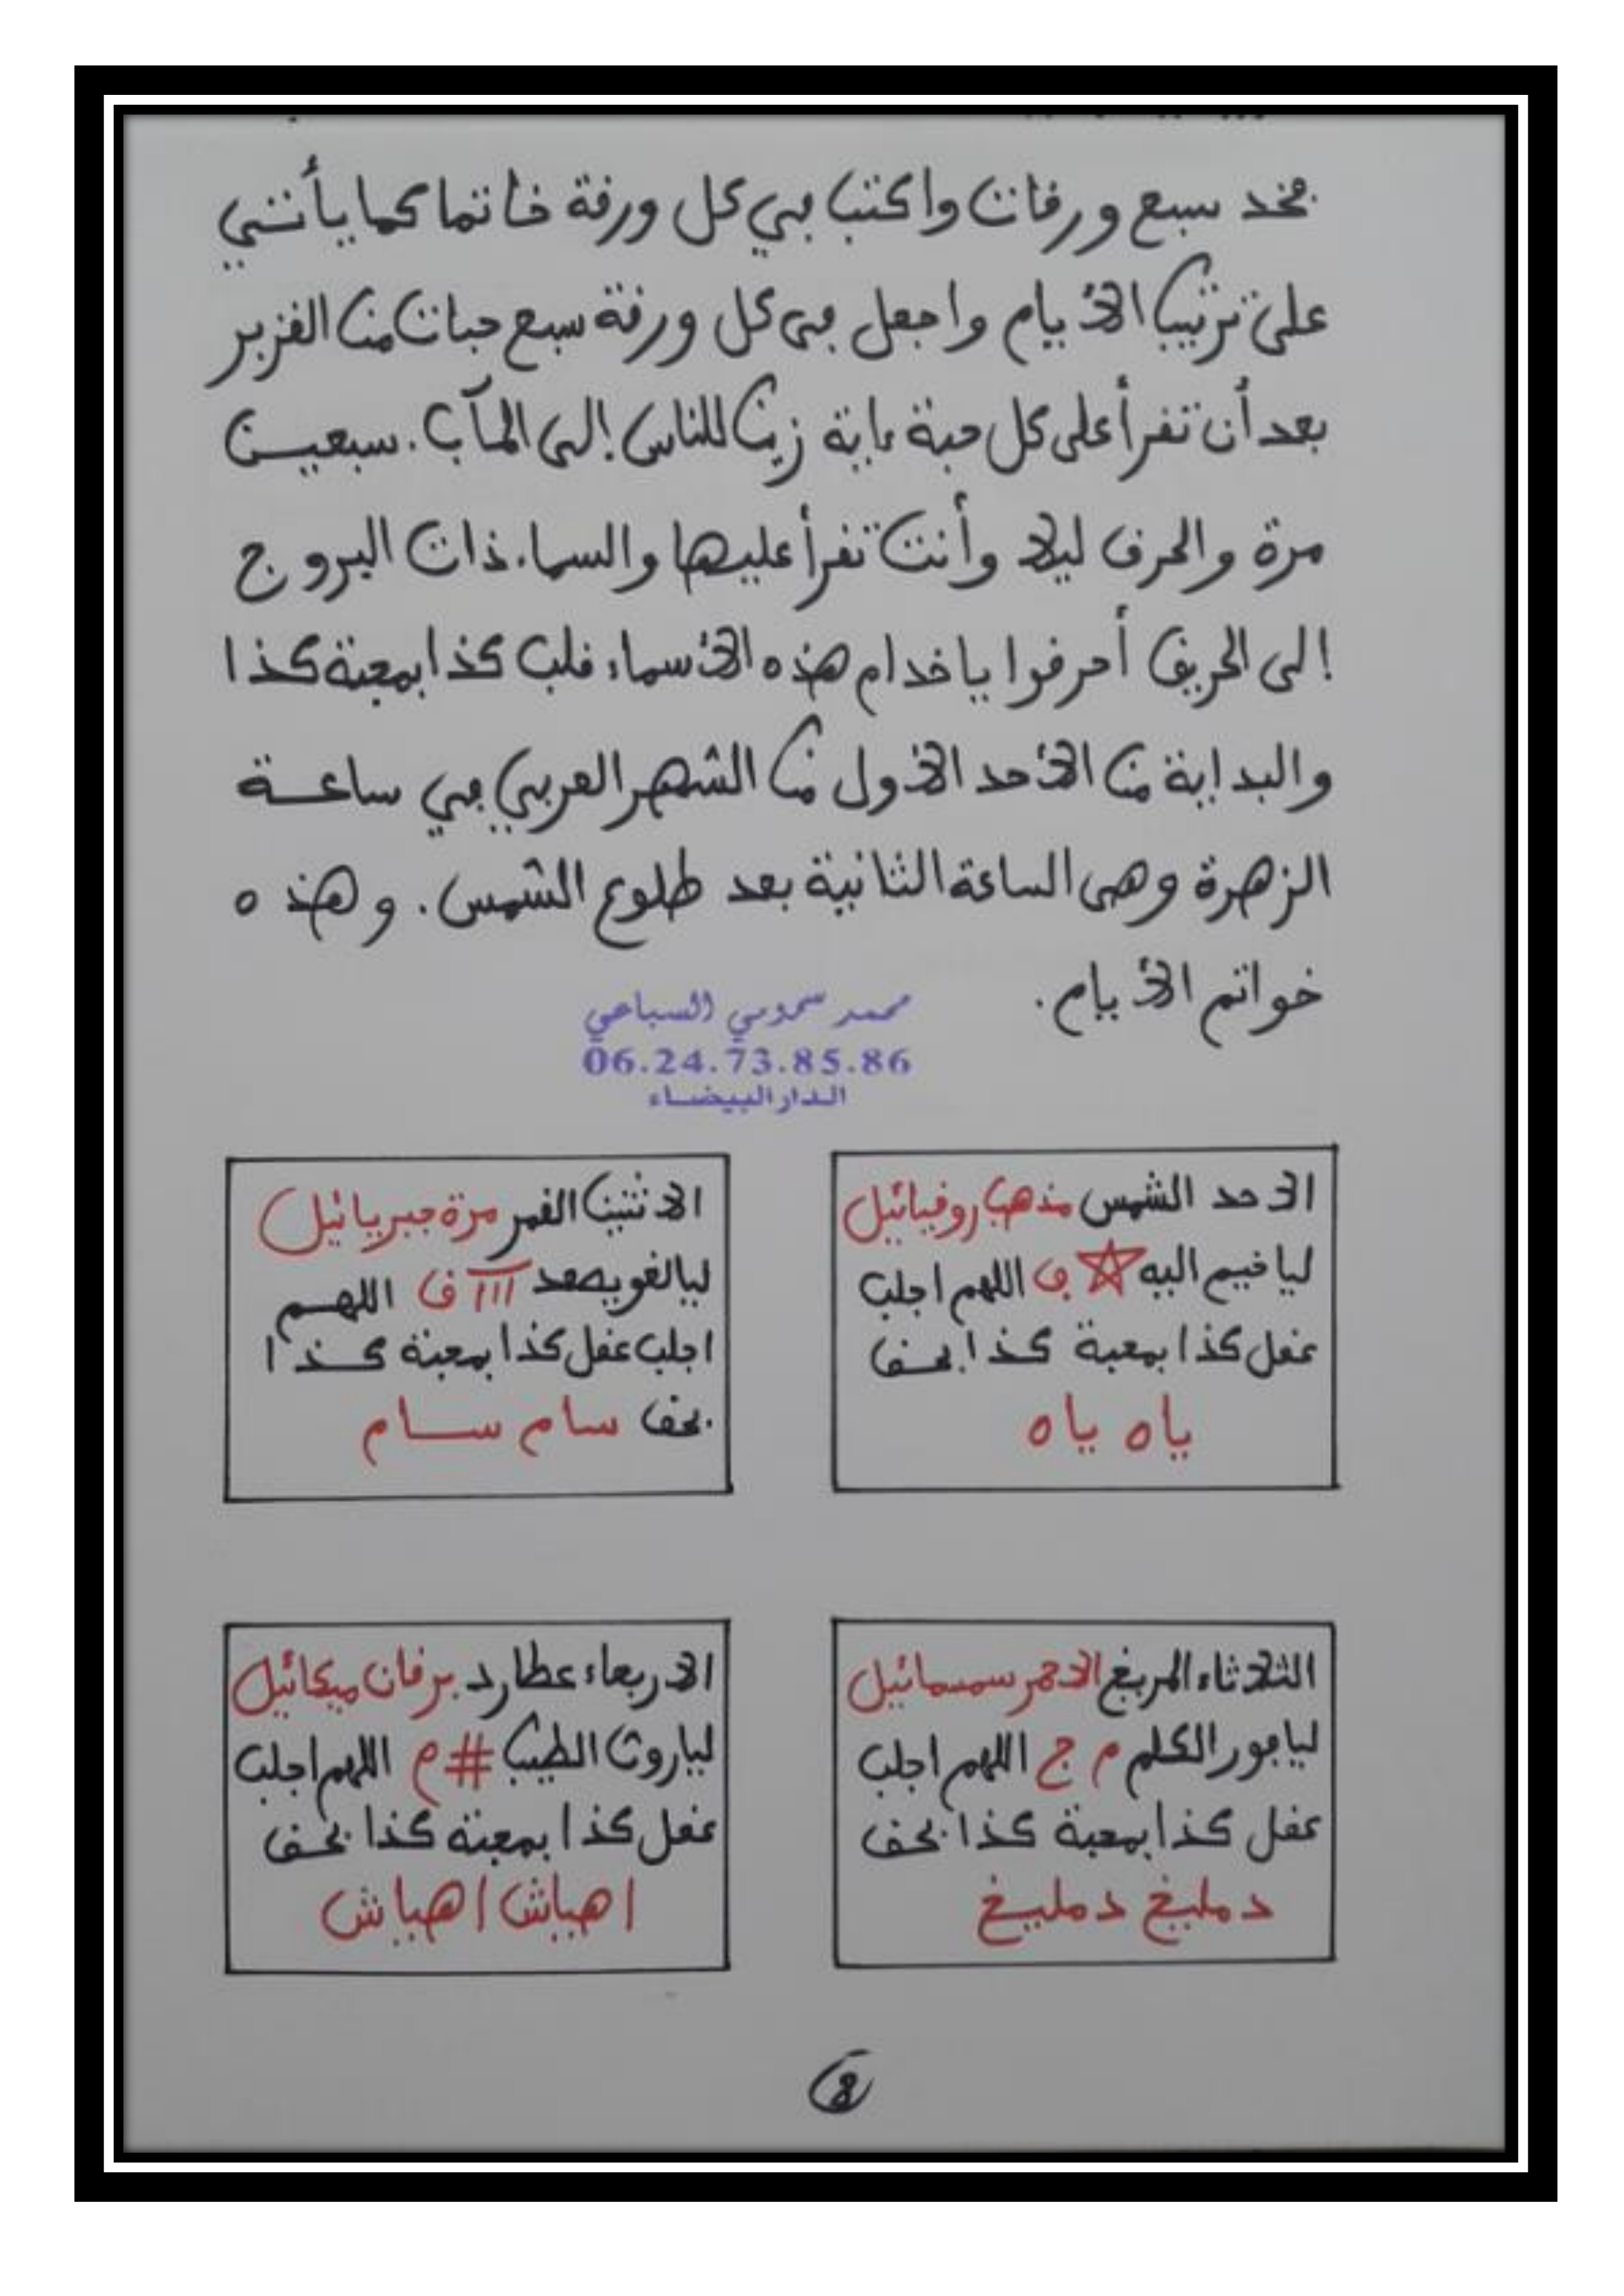 فخد سبع ورقات واكتب في كل ورقة خاتما كما يأتي
على ترتيب الأيام واجعل في كل ورقة سبع حبات من القزبر
بعد أن تقرأ على كل حبة ءاية زين للناس إلى المآب. سبعين
مرة والحرق ليلا وأنت تقرأ عليها والسماء ذات البروج
إلى الحريق أحرقوا يا خدام هذه الأسماء قلب كذا بمحبة كذا
والبداية من الأحد الأول من الشهر العربي في ساعة
الزهرة وهي الساعة الثانية بعد طلوع الشمس. وهذه
خواتم الأيام.
محمد سموني السباعي
06.24.73.85.86
الدار البيضاء
الاحد الشمس مذهب روقيائيل
ليا خيم اليه ☆ ف اللهم اجلب
عقل كذا بمحبة كذا بحق
ياه ياه
الاثنين القمر مرة جبريائيل
ليالغو ااا ق اللهم
اجلب عقل كذا بمحبة كذا
بحق سام سام
الثلاثاء المريخ الاحمر سمسمائيل
ليافور الكلم م ج اللهم اجلب
عقل كذا بمحبة كذا بحق
دمليخ دمليخ
الاربعاء عطارد برقان ميكائيل
لياروث الطيب # م اللهم اجلب
عقل كذا بمحبة كذا بحق
اهياش اهياش
8